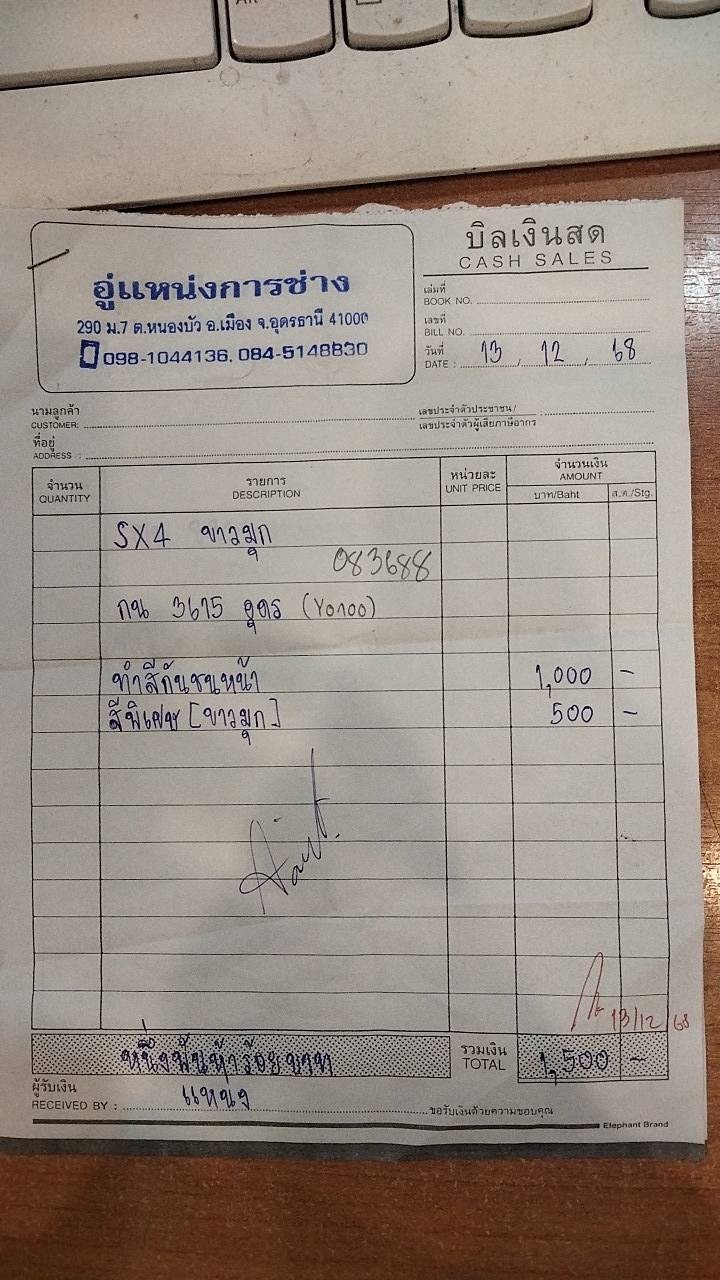 บิลเงินสด
CASH SALES
อู่แหน่งการช่าง
290 ม.7 ต.หนองบัว อ.เมือง จ.อุดรธานี 41000
098-1044136. 084-5148830
เล่มที่
BOOK NO.
เลขที่
BILL NO.
วันที่
DATE : 13 , 12 , 68
นามลูกค้า
CUSTOMER:
เลขประจำตัวประชาชน/
เลขประจำตัวผู้เสียภาษีอากร :
ที่อยู่
ADDRESS :
จำนวน รายการ หน่วยละ จำนวนเงิน
QUANTITY DESCRIPTION UNIT PRICE AMOUNT
บาท/Baht ส.ต./Stg.
SX4 ขาวมุก
083688
กน 3675 อุดร
ทำสีกันชนหน้า 1,000 -
สีพิเศษ [ขาวมุก] 500 -
13/12/68
หนึ่งพันห้าร้อยบาท รวมเงิน 1,500 -
TOTAL
ผู้รับเงิน
RECEIVED BY : แหน่ง ขอรับเงินด้วยความขอบคุณ
Elephant Brand